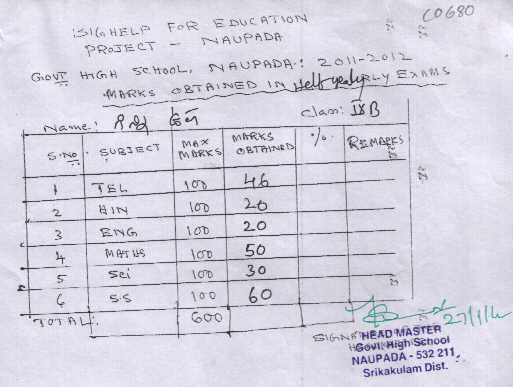 C0680
SIGHELP FOR EDUCATION
PROJECT - NAUPADA
GOVT HIGH SCHOOL, NAUPADA: 2011-2012
MARKS OBTAINED IN Half yearly EXAMS
Name: Class: IX B
S.NO SUBJECT MAX MARKS MARKS OBTAINED % REMARKS
1 TEL 100 46
2 HIN 100 20
3 ENG 100 20
4 MATHS 100 50
5 Sci 100 30
6 S.S 100 60
TOTAL: 600
27/1/12
HEAD MASTER
Govt. High School
NAUPADA - 532 211,
Srikakulam Dist.